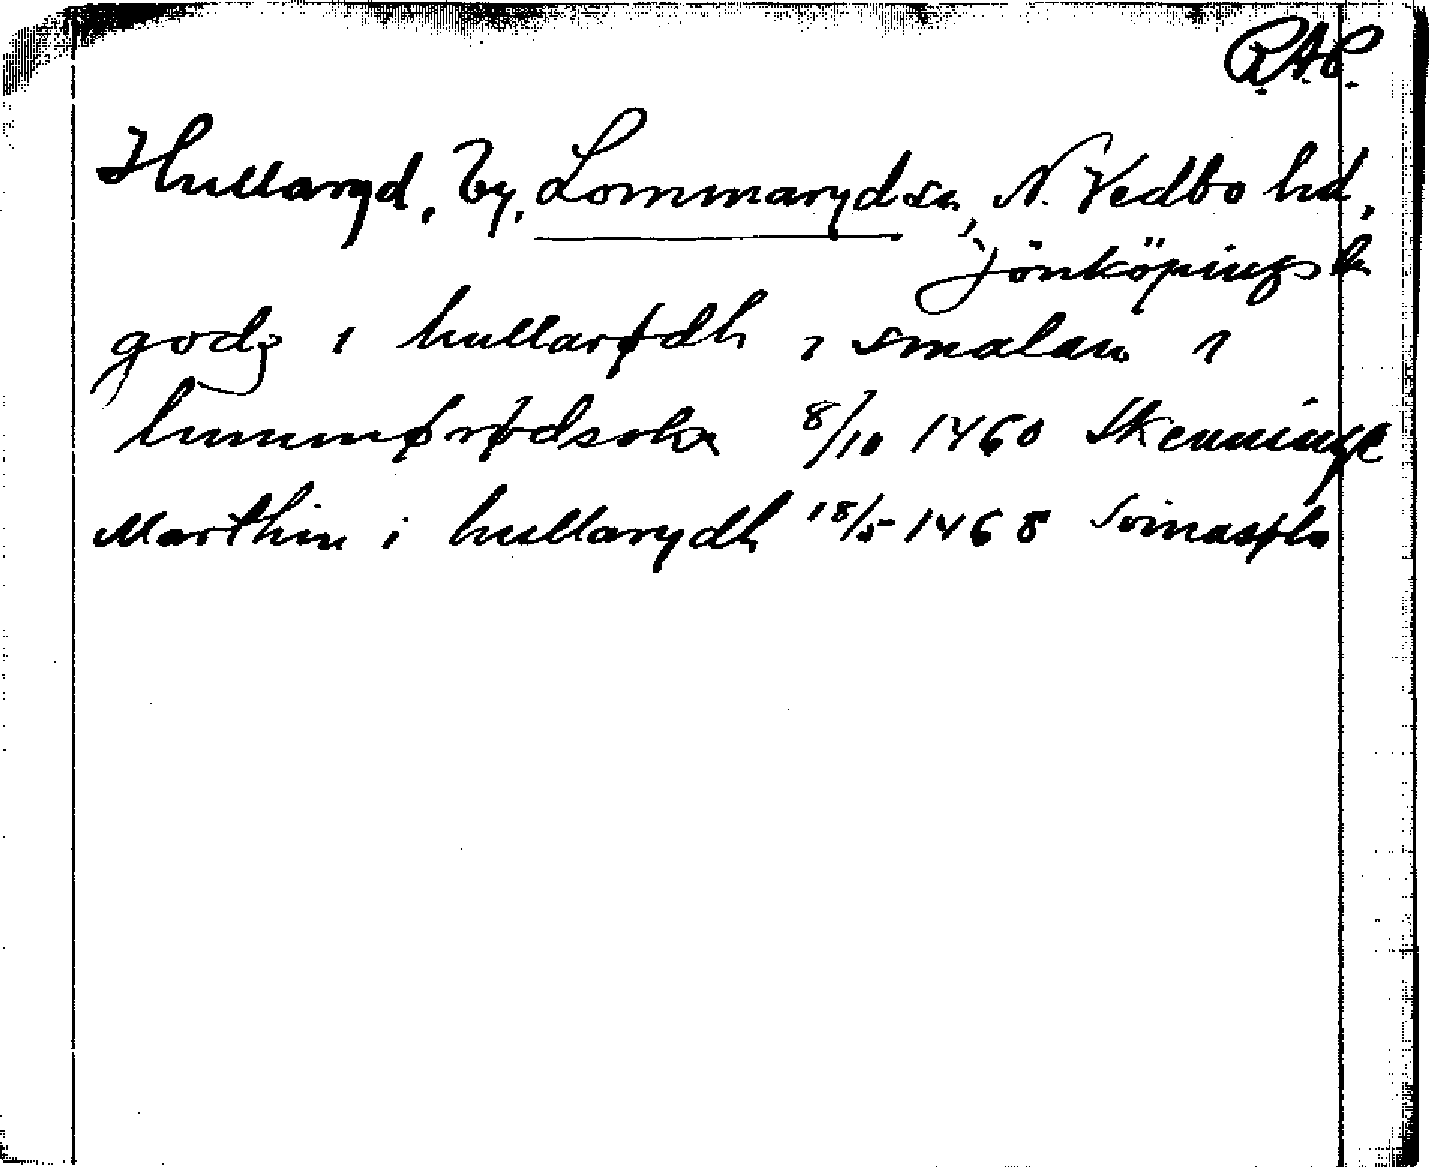 R.A.P.
Hullaryd, by, Lommaryds sn, N. Vedbo hd,
Jönköpings l.
godz i hullarødh i smalan i
lummørødsokn 8/10 1460 Skenninge
Marthin i hullarydh 18/5 1468